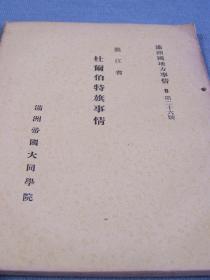 滿洲國地方事情 B 第二十六號
龍江省
杜爾伯特旗事情
滿洲帝國大同學院